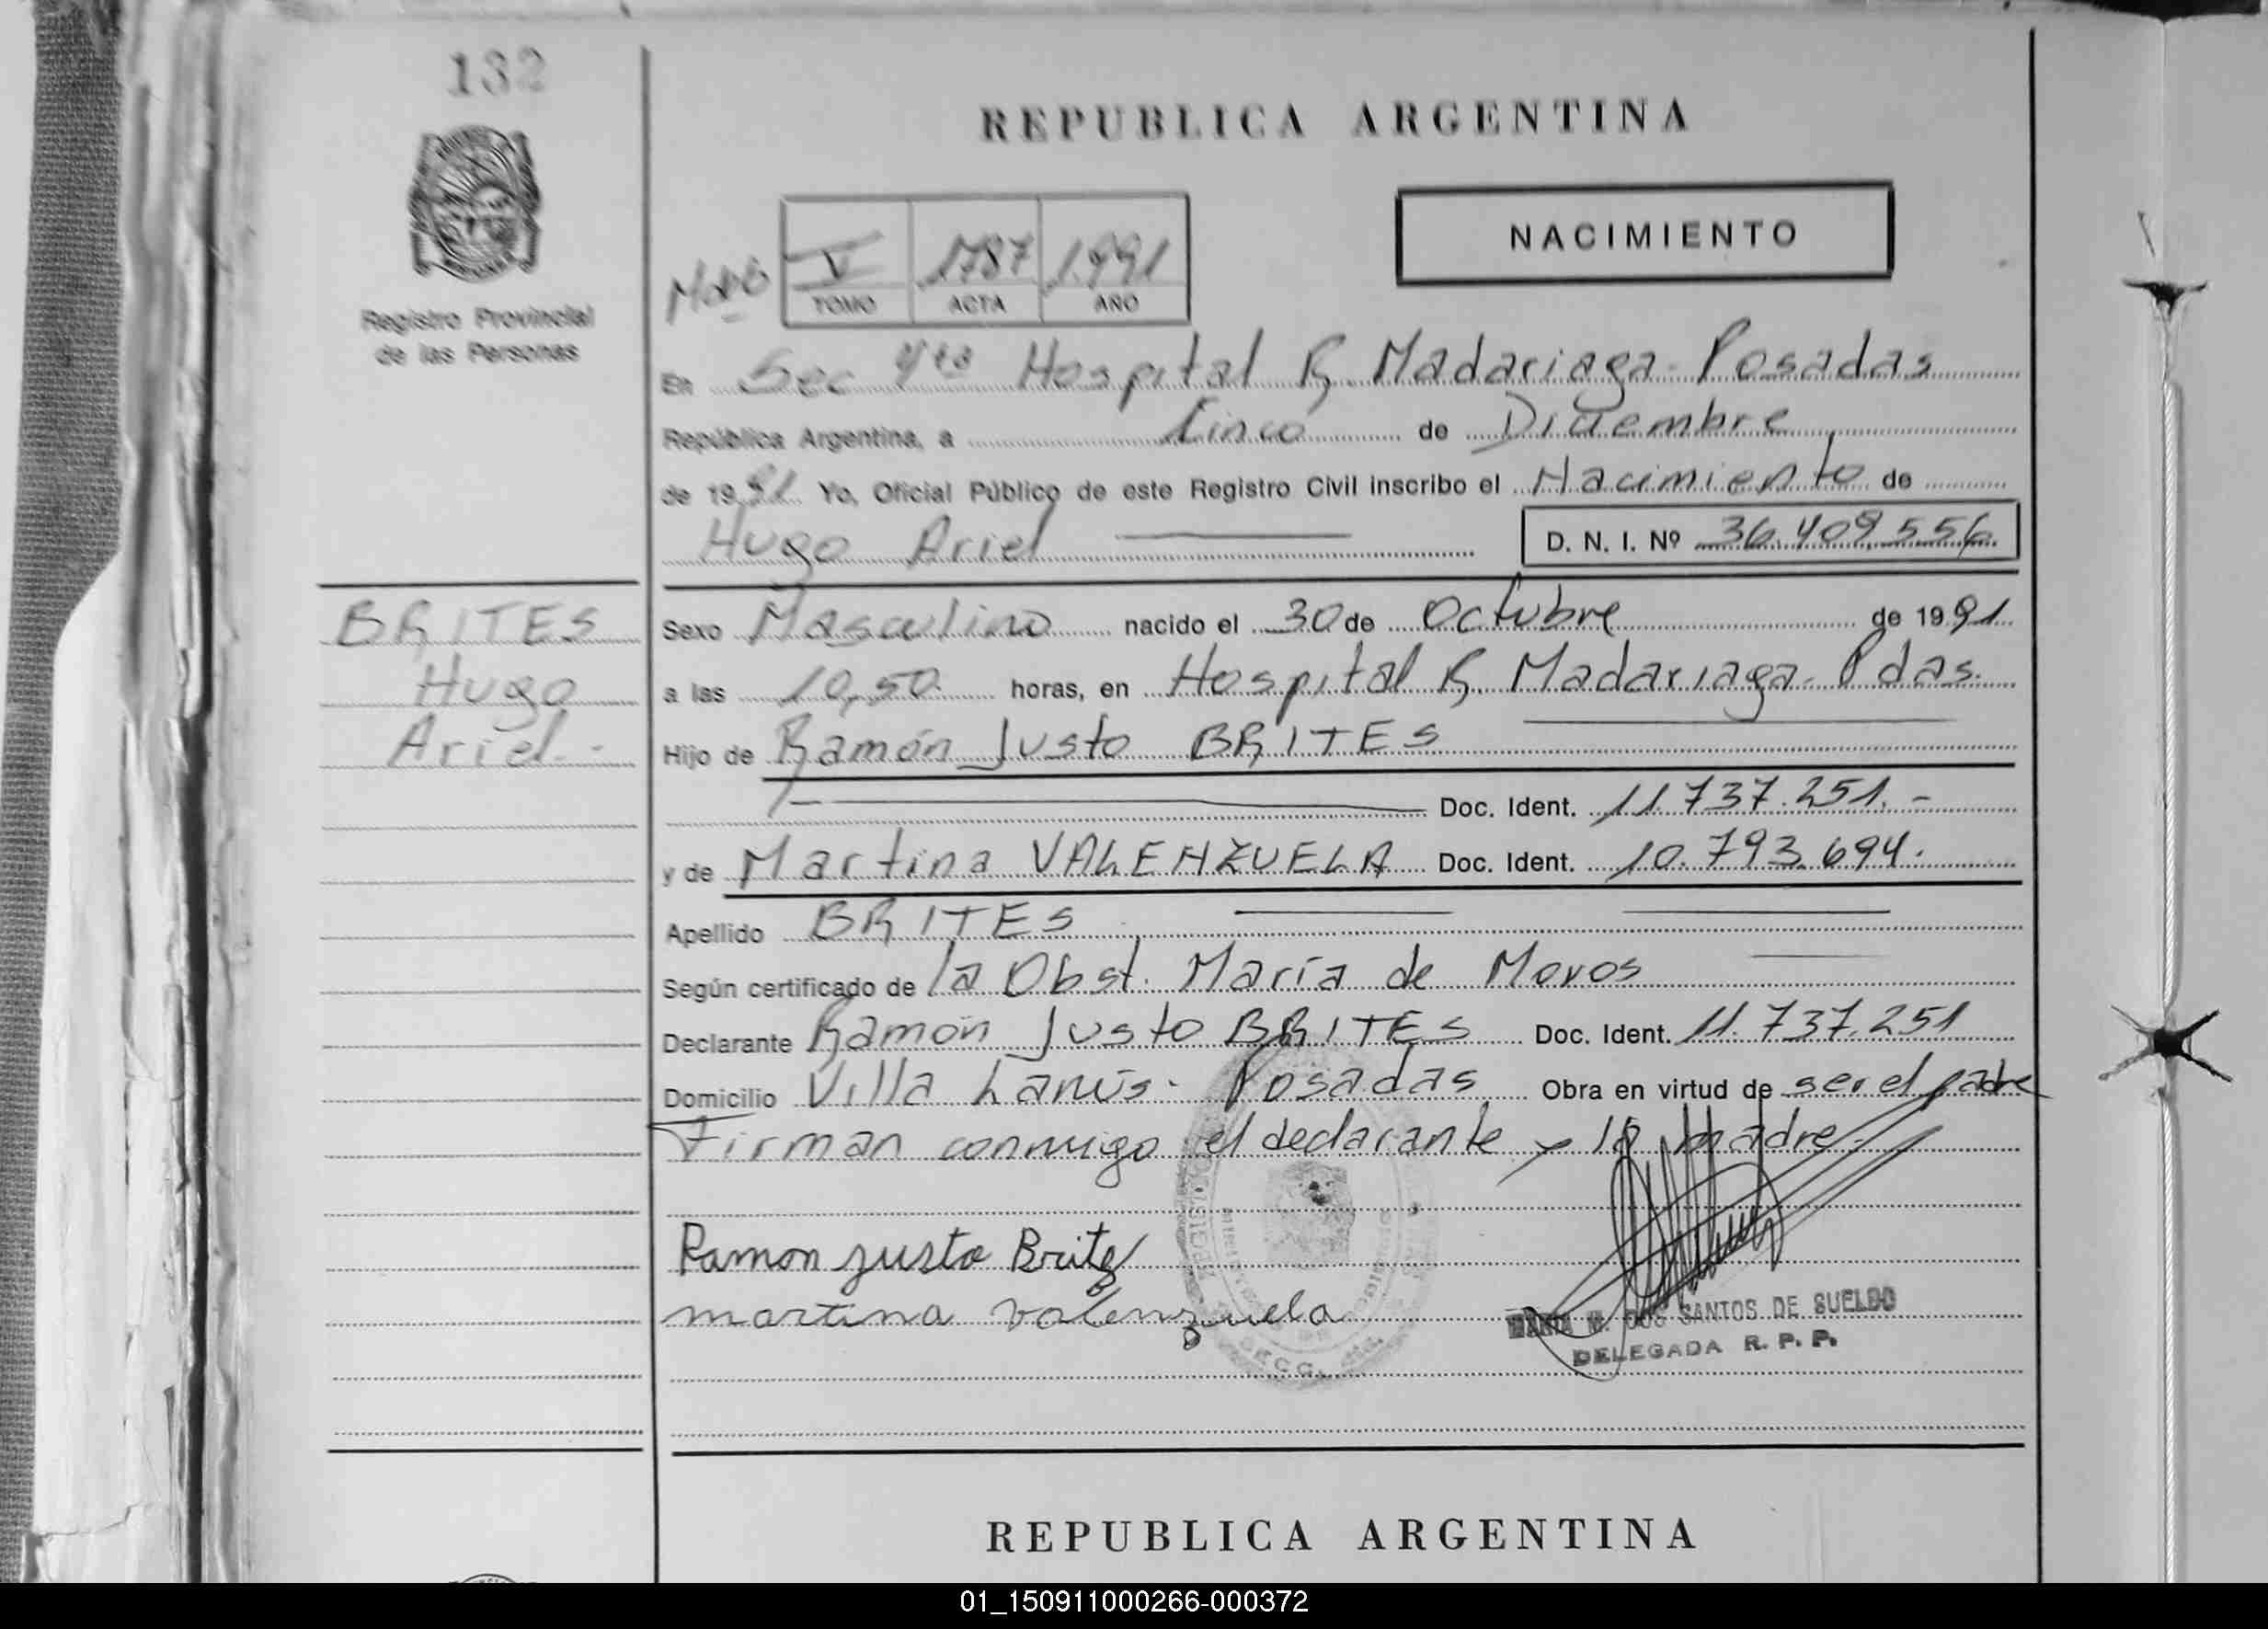 132
REPUBLICA ARGENTINA
Registro Provincial
de las Personas
V 1787 1.991
TOMO ACTA AÑO
NACIMIENTO
En Sec 4ta Hospital R. Madariaga - Posadas
República Argentina, a Cinco de Diciembre
de 1991 Yo, Oficial Público de este Registro Civil inscribo el Nacimiento de
Hugo Ariel D. N. I. Nº 36.409.556
BRITES
Hugo
Ariel.-
Sexo Masculino nacido el 30 de Octubre de 1991
a las 10,50 horas, en Hospital R. Madariaga - Pdas.
Hijo de Ramón Justo BRITES
Doc. Ident. 11.737.251.-
y de Martina VALENZUELA Doc. Ident. 10.793.694.
Apellido BRITES
Según certificado de la Obst. María de Movos
Declarante Ramón Justo BRITES Doc. Ident. 11.737.251
Domicilio Villa Lanús - Posadas Obra en virtud de ser el padre
Firman conmigo el declarante y la madre.
Ramon Justo Brites
martina valenzuela
DOS SANTOS DE SUELDO
DELEGADA R. P. P.
REPUBLICA ARGENTINA
01_150911000266-000372